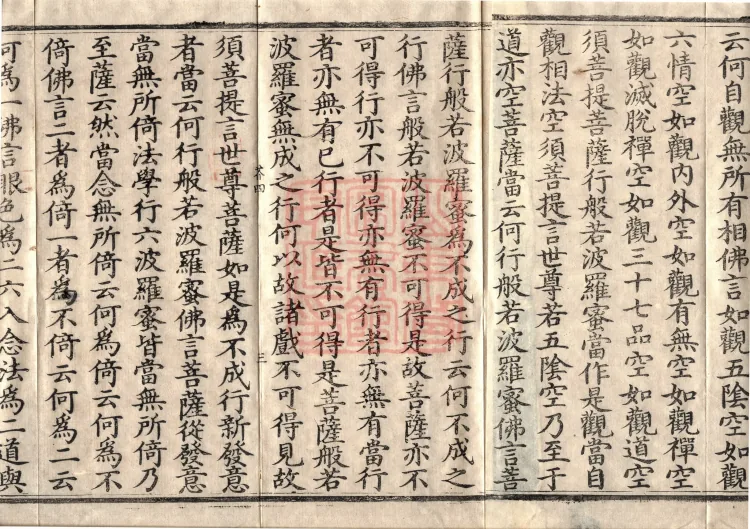 云何自觀無所有相佛言如觀五陰空如觀
六情空如觀內外空如觀有無空如觀禪空
如觀滅脫禪空如觀三十七品空如觀道空
須菩提菩薩行般若波羅蜜當作是觀當自
觀相法空須菩提言世尊若五陰空乃至于
道亦空菩薩當云何行般若波羅蜜佛言菩
薩行般若波羅蜜為不成之行云何不成之
行佛言般若波羅蜜不可得是故菩薩亦不
可得行亦不可得亦無有行者亦無有當行
者亦無有已行者是皆不可得是菩薩般若
波羅蜜無成之行何以故諸戲不可得見故
卷四
三
須菩提言世尊菩薩如是為不成行新發意
者當云何行般若波羅蜜佛言菩薩從發意
當無所倚法學行六波羅蜜皆當無所倚乃
至薩云然當念無所倚云何為倚云何為不
倚佛言二者為倚一者為不倚云何為二云
何為一佛言眼色為二六入念法為二道與